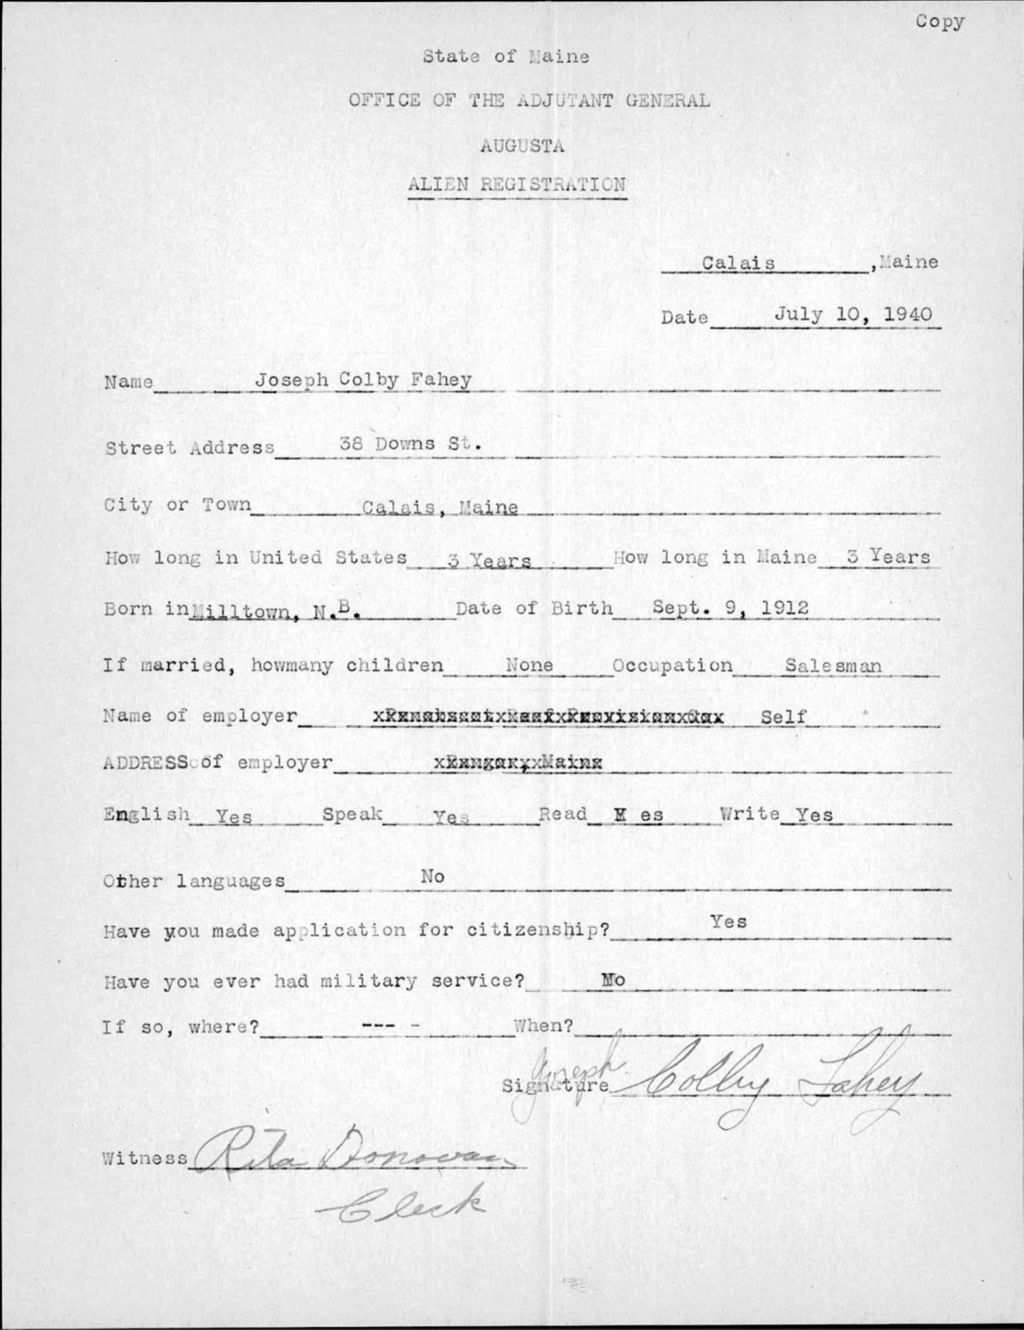 Copy
State of Maine
OFFICE OF THE ADJUTANT GENERAL
AUGUSTA
ALIEN REGISTRATION
Calais, Maine
Date July 10, 1940
Name Joseph Colby Fahey
Street Address 38 Downs St.
City or Town Calais, Maine
How long in United States 3 Years How long in Maine 3 Years
Born in Milltown, N.B. Date of Birth Sept. 9, 1912
If married, howmany children None Occupation Salesman
Name of employer Self
ADDRESS of employer
English Yes Speak Yes Read Yes Write Yes
Other languages No
Have you made application for citizenship? Yes
Have you ever had military service? No
If so, where? --- - When?
Signature Joseph Colby Fahey
Witness Rita Donovan
Clerk